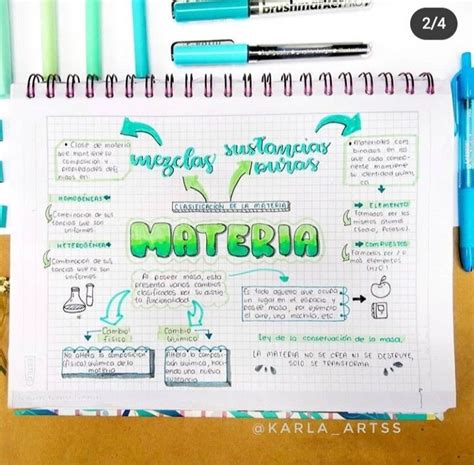 2/4
brushmarker PRO
mezclas
sustancias
puras
• Clase de materia
que mantiene su
composición y
propiedades
• Materiales com
binados en
que cada compo-
nente mantiene
su identidad quími
ca.
CLASIFICACIÓN DE LA MATERIA
MATERIA
HOMOGÉNEAS
Combinación de sus
tancias que son
uniformes.
HETEROGÉNEA
Combinación de sus
tancias que no son
uniformes.
→ ELEMENTO
formados por los
mismos átomos
(Sodio, Potasio).
→ COMPUESTOS
formados por 2 o
más elementos
(H2O)
Al poseer masa, esta
presenta varios cambios
clasificados por su
funcionalidad
Es todo aquello que ocupa
un lugar en el espacio, y
posee masa, por ejemplo
el aire, una mochila, etc.
Cambio
físico
Cambio
químico
No altera la composición
(física) química de la
materia
Altera la composi-
ción química, hac
iendo una nueva
sustancia
Ley de la conservación de la masa
LA MATERIA NO SE CREA NI SE DESTRUYE,
SOLO SE TRANSFORMA.
@KARLA_ARTSS